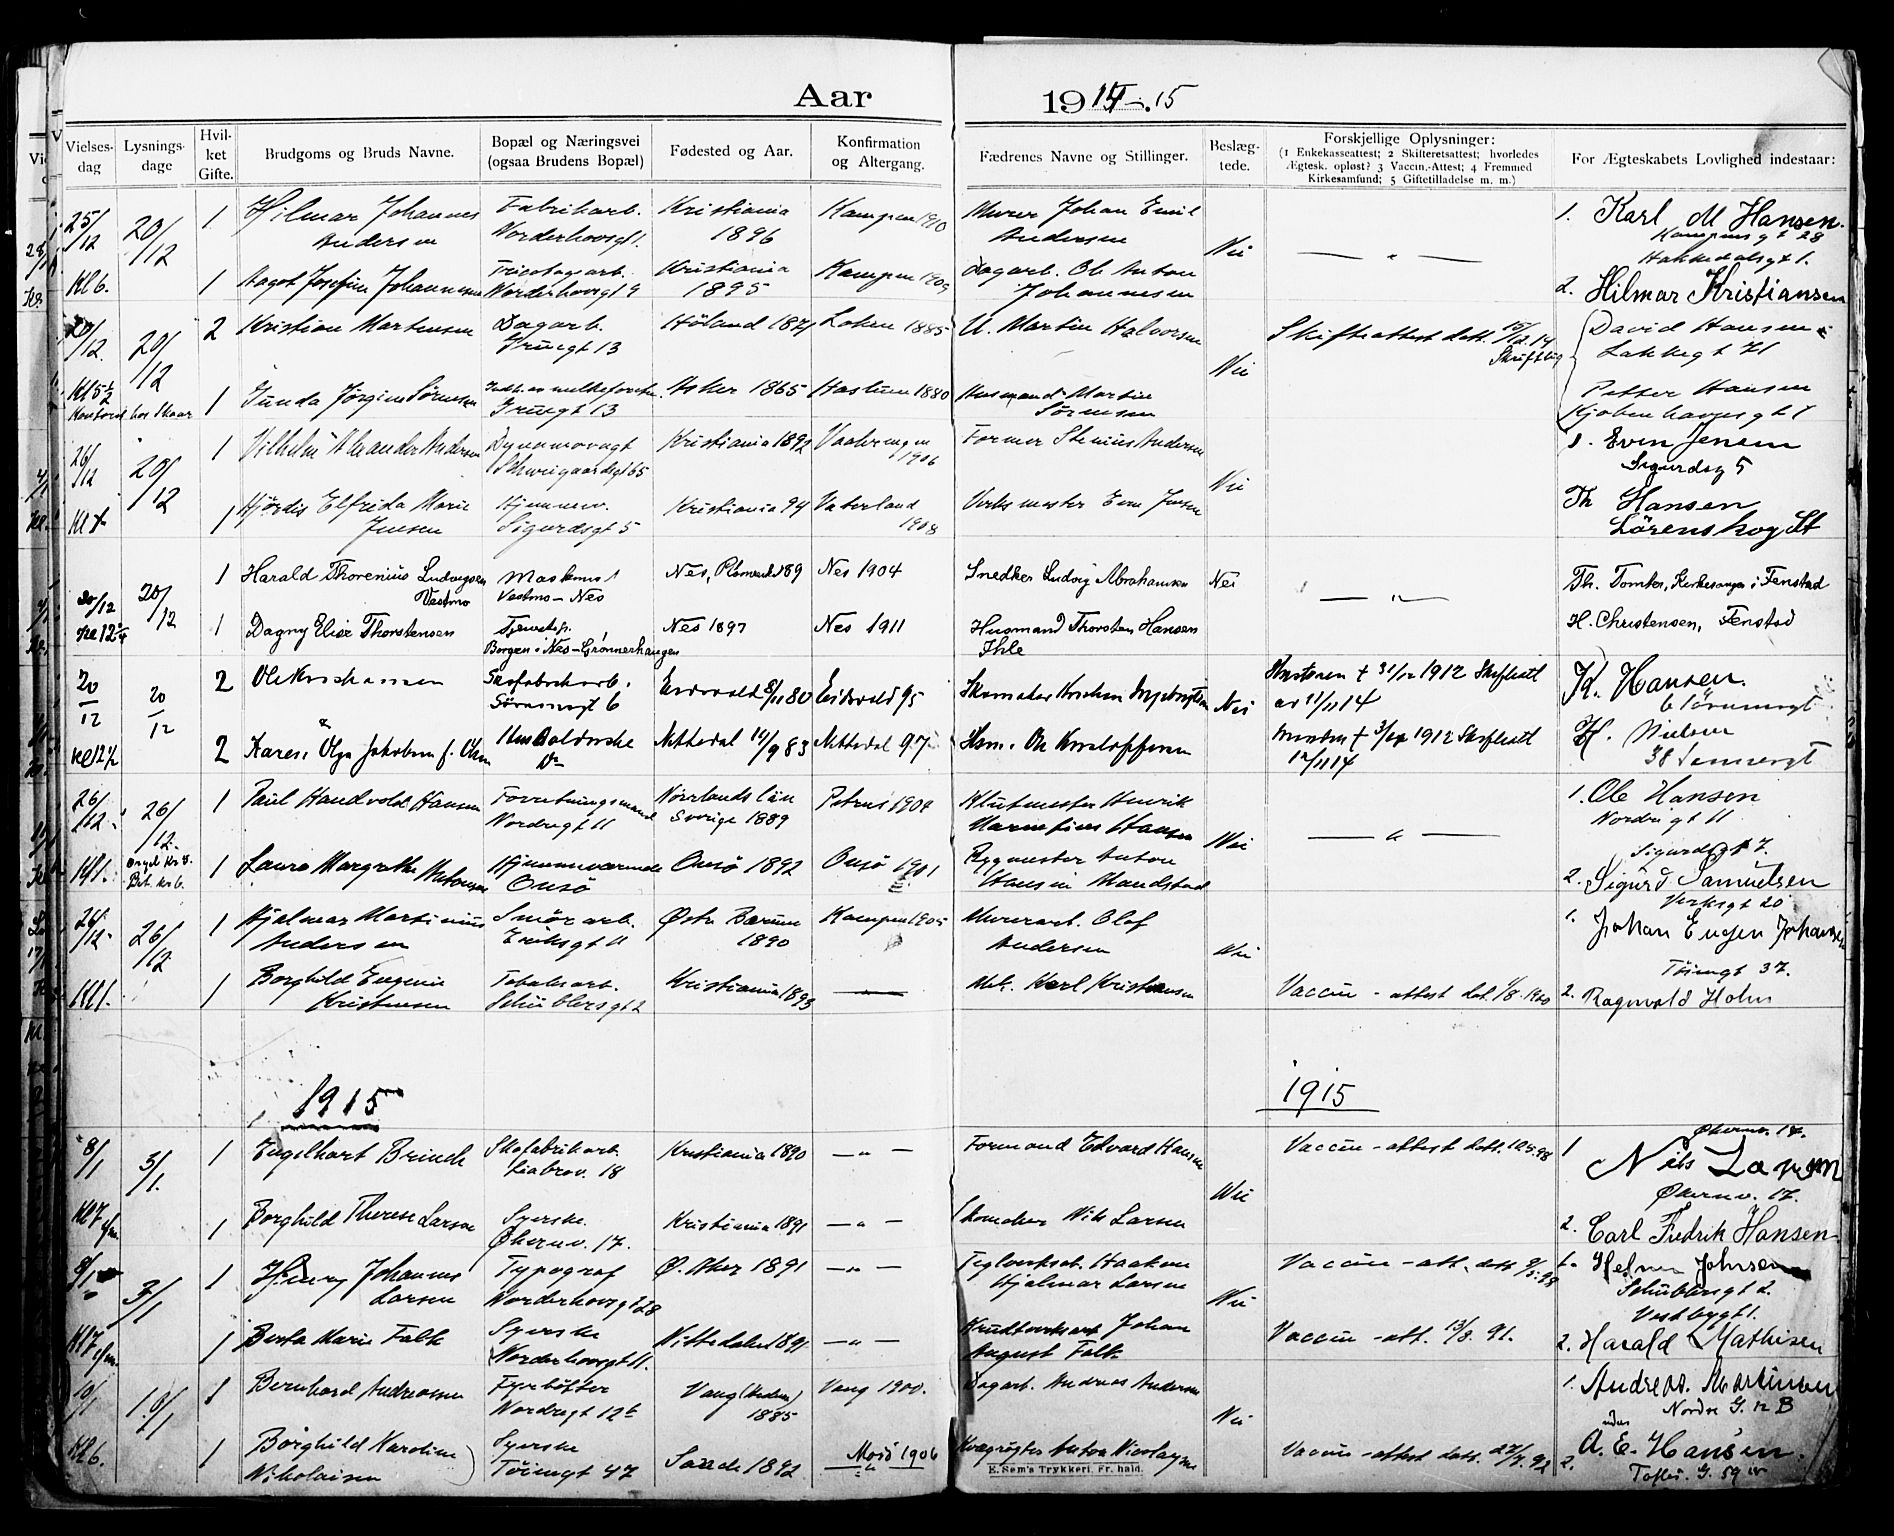 Aar 1914-15
Vielses-dag
Lysnings-dage
Hvil-ket Gifte.
Brudgoms og Bruds Navne.
Bopæl og Næringsvei (ogsaa Brudens Bopæl)
Fødested og Aar.
Konfirmation og Altergang.
Fædrenes Navne og Stillinger.
Beslæg-tede.
Forskjellige Oplysninger:
(1 Enkekasseattest; 2 Skifteretsattest; hvorledes
Ægtesk. opløst? 3 Vaccin.-Attest; 4 Fremmed
Kirkesamfund; 5 Giftetilladelse m. m.)
For Ægteskabets Lovlighed indestaar:
25/12 20/12 1 Hilmar Johannes Andersen Fabrikarb. Norderhovsgt 1. Kristiania 1896 Kampen 1910 Murer Johan Emil Andersen Nei — " — 1. Karl M Hansen. Kampens gt 28
Kl 6. 1 Aagot Josefine Johannesen Tricotagearb. Norderhovsgt 9 Kristiania 1895 Kampen 1909 Dagarb. Ole Anton Johannesen Hakkedalsgt 1. 2. Hilmar Kristiansen
/12. 20/12 2 Kristian Martinsen Dagarb. gt 13 Høland 1871 Løken 1885 U. Martin Halvorsen Nei Skifteattest dat. 15/12.14 Skriftlig David Hansen Lakkegt 71
Kl 5½ Kontoret hos Skaar 1 Gunda Jørgine Sørensen gt 13 Asker 1865 Haslum 1880 Husmand Martin Sørensen Petter Hansen Kjøbenhavnsgt 1
26/12 20/12 1 Vilhelm Alexander Andersen Dynamovagt Schweigaardsgt 65 Kristiania 1892 Vaalerengen 1906 Former Andersen Nei 1. Even Jensen Sigurdsg 5
Kl 1 Hjørdis Elfrida Marie Jensen Hjemmev. Sigurdsgt 5 Kristiania 94 Vaterland 1908 Verksmester Even Jensen Th Hansen Lørenskog St
20/12 20/12 1 Harald Thorenius Ludvigsen Vestmo Maskinist Vestmo - Nes Nes, 189 Nes 1904 Snedker Ludvig Abrahamsen Nei — " — Th. Tomter, Kirkesanger i Fenstad
Kl 12¾ 1 Dagny Elise Thorstensen Tjenestep. Borgen i Nes - Grønnerhaugen Nes 1897 Nes 1911 Husmand Thorsten Hansen Ihle H. Christensen, Fenstad
20/12 20/12 2 Ole Kristiansen Skofabrikarb. Sørumsgt 6 Eidsvold 8/11 80 Eidsvold 95 Skomaker Nei Hustruen † 31/12 1912 Skifteatt av 11/11 14 K. Hansen. 6 Sørumsgt
Kl 12½ 2 Karen Olga Jakobsen f. Olsen Do Nittedal 14/9 83 Nittedal 97 Hsm. Ole Kristoffersen Manden † 1912 Skifteatt 12/11 14 H. Nielsen 38 gt
26/12. 26/12. 1 Paul Handvold Hansen Forretningsmand Nordregt 11 Norrlands län Sverige 1889 Petrus 1904 Henrik Hansen Nei — " — 1. Ole Hansen Nordregt 11
Kl 1. 1 Laura Margrethe Antonsen Hjemmeværende Onsø Onsø 1892 Onsø 1901 Bygmester Anton Hansen Sigurdsgt 7. 2. Sigurd Samuelsen
26/12. 26/12 1 Hjalmar Martinius Andersen Smørarb. Eriksgt 11 Østre Bærum 1890 Kampen 1905 Murerarb. Olof Andersen Nei Verksgt 20 1. Johan Eugen Johansen
Kl 1. 1 Borghild Eugenie Kristensen Tobaksarb. Schüblersgt 2 Kristiania 1893 — Karl Kristensen Vaccin-attest dat. 1/8. 1900 Tøiengt 37. 2. Ragnvald Holm
1915 1915
8/1 3/1. 1 Engelhart Brinck Skofabrikarb. Liabrov. 18 Kristiania 1890 — " — Formand Edvard Hansen Nei Vaccin-attest dat. 12.5.98 1 Økernv. 17. Nils Larsen
Kl 7 e/m. 1 Borghild Therese Larsen Syerske. Økernv. 17. Kristiania 1891 — " — Skomaker Nils Larsen Økernv. 17. 2. Carl Fredrik Hansen
8/1 3/1 1 Henry Johannes Larsen Typograf Norderhovsgt 28 Ø. Aker 1891 — " — Teglverksarb. Haakon Hjalmar Larsen Nei Vaccin-att. dat. 9/5. 98 1. Helmer Johnsen Schüblersgt 2.
Kl 7 e/m. 1 Berta Marie Falk Syerske Norderhovsgt 11. Nittedalen 1891. — " — Krudtverksarb. Johan August Falk Vaccin-att. 13/8. 91. Vestbygt 1. 2. Harald Mathisen
10/1 10/1 1 Bernhard Andreassen Fyrbøter Nordregt 12b Vang (Hedem.) 1885 Vang 1900. Dagarb. Andreas Andersen Nei 1. Andreas. Martinsen Nordre G. 12 B
Kl 6. 1 Borghild Karoline Nikolaisen Syerske Tøiengt 47 Sande 1892 Moss 1906 Kvægrøgter Anton Nicolaysen Vaccin-attest dat. 27/7. 92 2. A. E. Hansen. Toftes. G. 59
E. Sem's Trykkeri, Fr. hald.